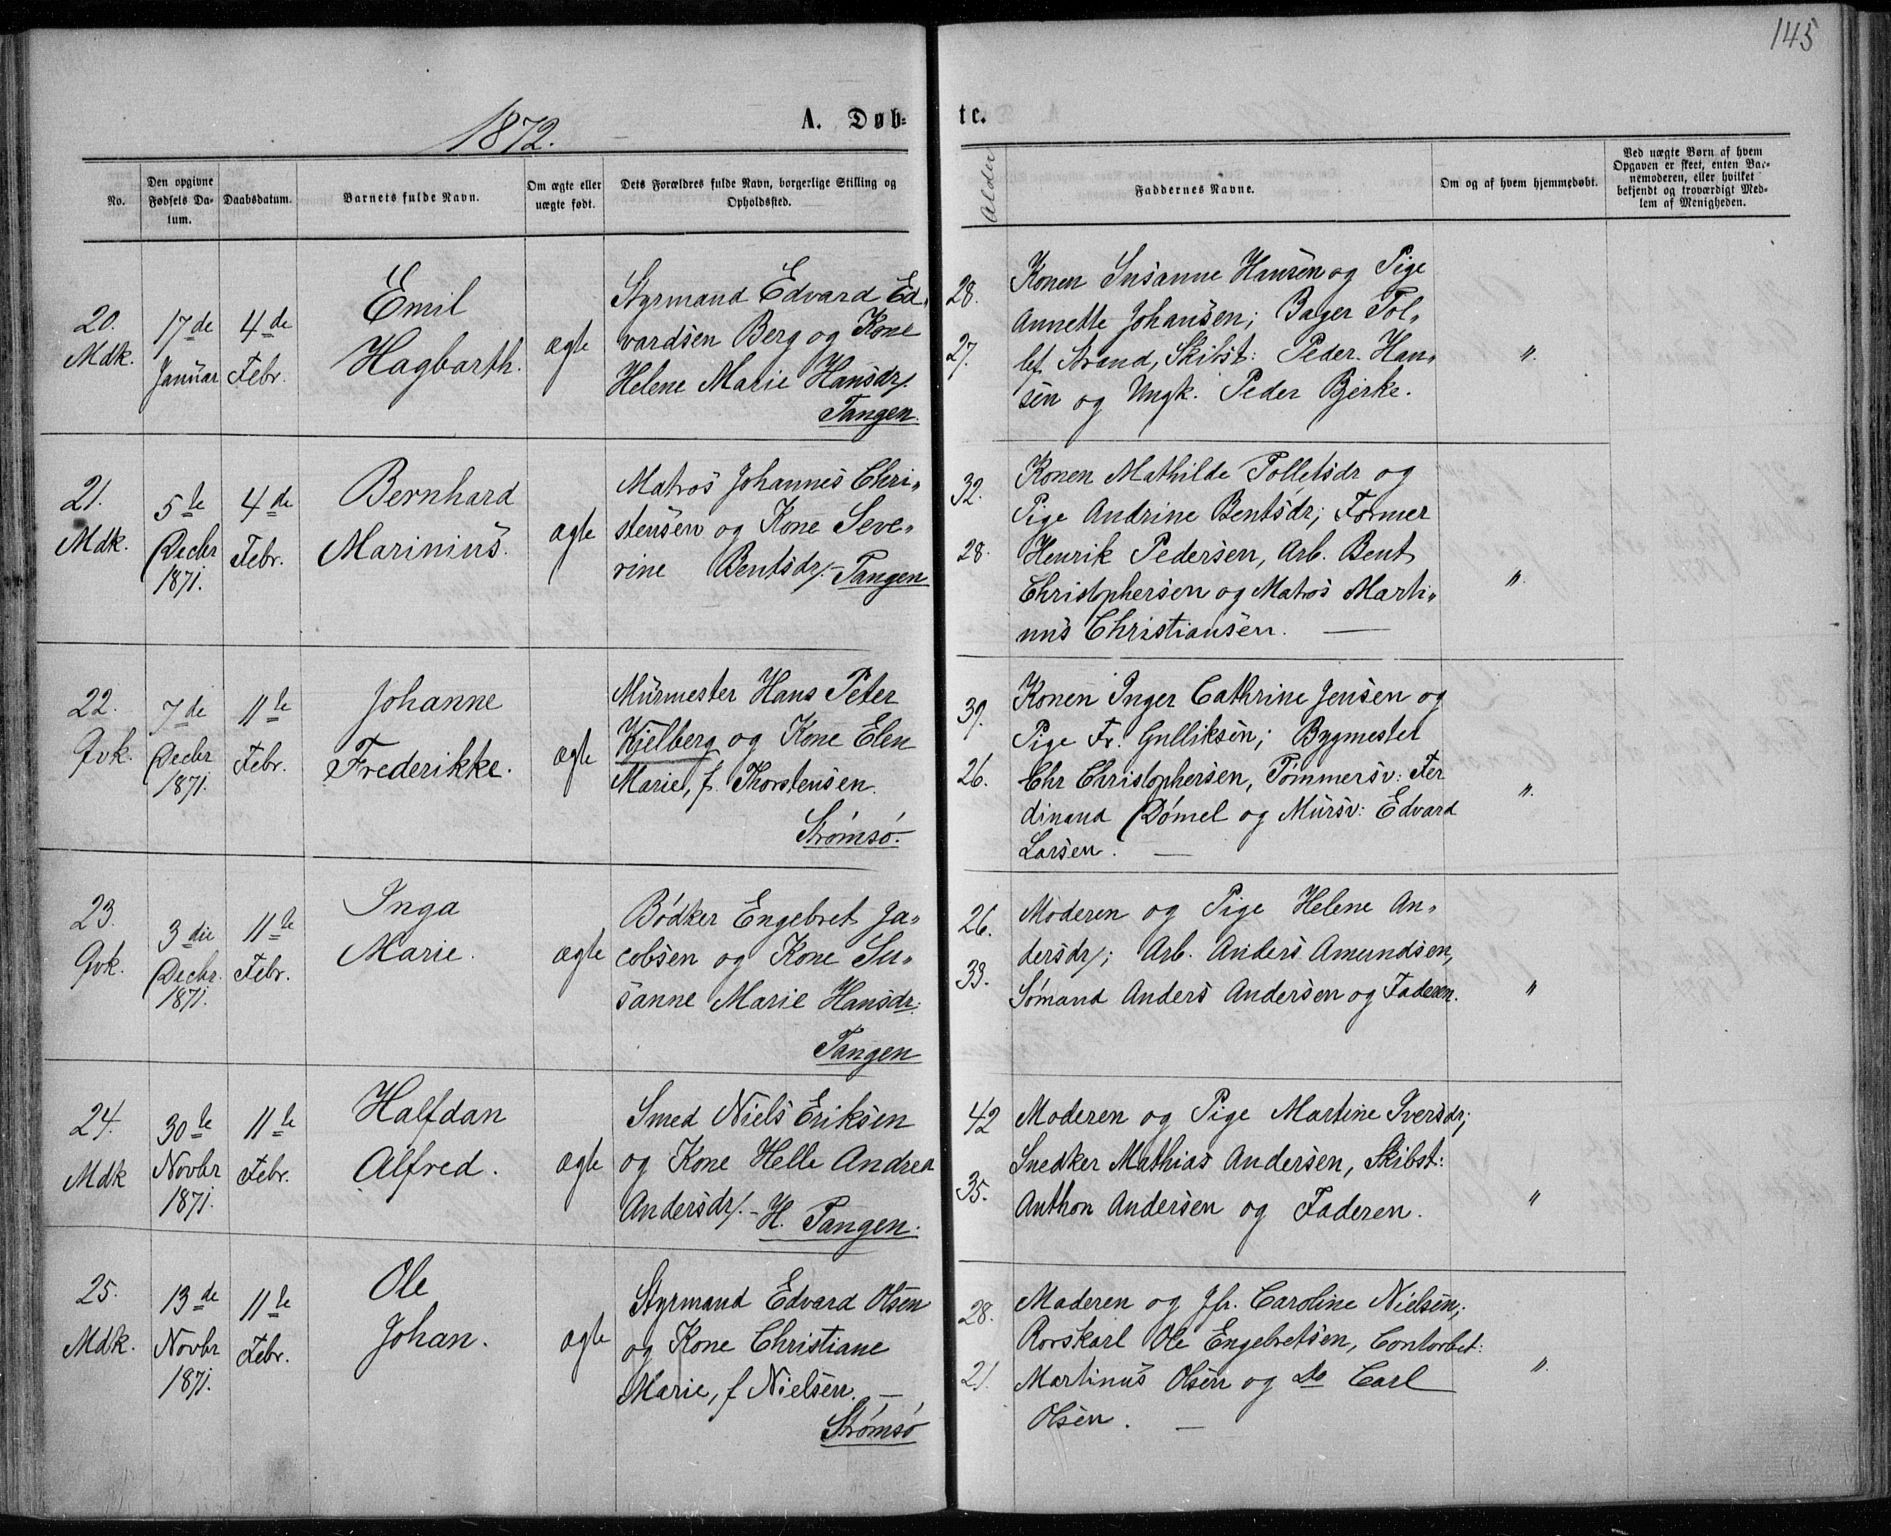 145
1872.
A. Døb-
te.
No.
Den opgivne Fødsels Da-tum.
Daabsdatum.
Barnets fulde Navn.
Om ægte eller uægte født.
Dets Forældres fulde Navn, borgerlige Stilling og Opholdssted.
Alder
Faddernes Navne.
Om og af hvem hjemmedøbt.
Ved uægte Børn af hvem Opgaven er skeet, enten Bar-nemoderen, eller hvilket bekjendt og troværdigt Med-lem af Menigheden.
20.
Mdk.
17de
Januar
4de
Febr.
Emil
Hagbarth.
ægte
Styrmand Edvard Ed-
vardsen Berg og Kone
Helene Marie Hansdr/
Tangen.
28.
27.
Konen Susanne Hansen og Pige
Annette Johansen; Bager Tol-
lef Strand, Skibst: Peder Han-
sen og Ungk. Peder Bjerke.
"
21.
Mdk.
5te
Decbr
1871.
4de
Febr.
Bernhard
Marinius.
ægte
Matros Johannes Chri-
stensen og Kone Seve-
rine Bentsdr/.- Tangen
32.
28.
Konen Mathilde Tollefsdr og
Pige Andrine Bentsdr; Former
Henrik Pedersen, Arb. Bent
Christophersen og Matros Marti-
nus Christiansen. —
"
22.
Qvk.
7de
Decbr
1871.
11te
Febr.
Johanne
Frederikke.
ægte
Murmester Hans Peter
Kjelberg og Kone Elen
Marie, f. Thorstensen.
Strømsø.
39.
26.
Konen Inger Cathrine Jensen og
Pige Fr. Gulliksen; Bygmester
Chr Christophersen, Tømmersv: Fer
dinand Dømel og Mursv: Edvard
Larsen. —
"
23.
Qvk.
3die
Decbr.
1871.
11te
Febr.
Inga
Marie.
ægte
Bødker Engebret Ja-
cobsen og Kone Su-
sanne Marie Hansdr.
Tangen
26.
33.
Moderen og Pige Helene An-
dersdr/; Arb. Anders Amundsen,
Sømand Anders Andersen og Faderen.
"
24.
Mdk
30te
Novbr
1871.
11te
Febr.
Halfdan
Alfred.
ægte
Smed Niels Eriksen
og Kone Helle Andrea
Andersdr/.- H. Tangen.
42
35.
Moderen og Pige Martine Iversdr;
Snedker Mathias Andersen, Skibst:
Anthon Andersen og Faderen.
"
25.
Mdk.
13de
Novbr
1871.
11te
Febr.
Ole
Johan.
ægte
Styrmand Edvard Olsen
og Kone Christiane
Marie, f Nielsen. —
Strømsø
28.
21.
Moderen og Jfr. Caroline Nielsen;
Rorskarl Ole Engebretsen, Contorbet:
Martinus Olsen og do Carl
Olsen. —
"